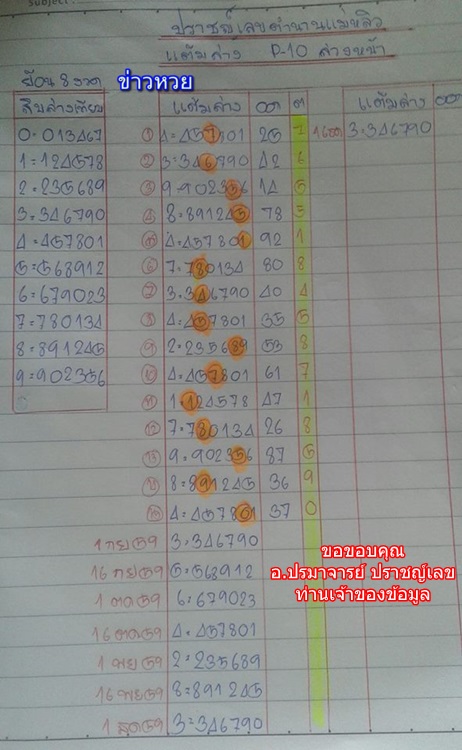 ปราชญ์เลขตำนานแม่หลิว
แต้มล่าง P-10 ล่างหน้า
ย้อน 8 งวด ข่าวหวย
สิบล่างเทียบ แต้มล่าง ต แต้มล่าง
0=013467 ① 4=457801 25 7 16ตค 3=346790
1=124578 ② 3=346790 42 6
2=235689 ③ 9=902356 14 5
3=346790 ④ 8=891245 78 5
4=457801 ⑤ 4=457801 92 1
5=568912 ⑥ 7=780134 80 8
6=679023 ⑦ 3=346790 40 4
7=780134 ⑧ 4=457801 35 5
8=891245 ⑨ 2=235689 53 8
9=902356 ๑๐ 4=457801 61 7
๑๑ 1=124578 47 1
๑๒ 7=780134 26 8
๑๓ 9=902356 87 5
๑๔ 8=891245 36 9
๑๕ 4=457801 37 0
1 กย๕๙ 3=346790
16 กย๕๙ 5=568912
1 ตค๕๙ 6=679023
16 ตค๕๙ 4=457801
1 พย๕๙ 2=235689
16 พย๕๙ 8=891245
1 ธค๕๙ 3=346790
ขอขอบคุณ
อ.ปรมาจารย์ ปราชญ์เลข
ท่านเจ้าของข้อมูล